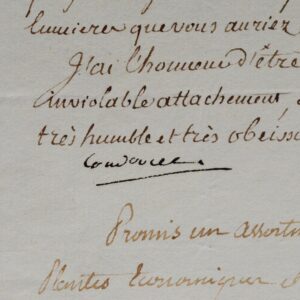 lumieres que vous auriez
J'ai l'honneur d'être
inviolable attachement,
très humble et très obeiss
Condorcet.
Promis un assortim
Plantes Economiques e